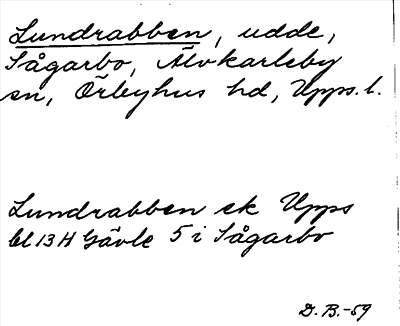 Lundrabben, udde,
Sågarbo, Älvkarleby
sn, Örbyhus hd, Upps. l.
Lundrabben ek Upps
bl 13 H Gävle 5 i Sågarbo
D. B. -59